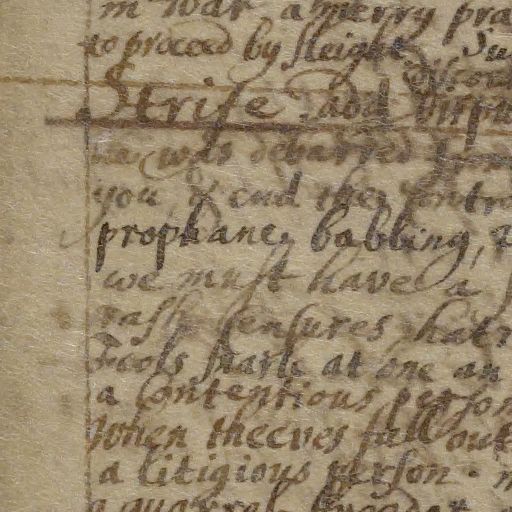 in war a merry pra
to proceed by sleight. Su
Discord
Strife and Dispu
he was debarred from
you & end the contro
prophane babbling,
we must have a
rash censures hatr
Fools snarle at one an
a contentious person
when theeves fall out
a litigious person. m
a quarrel breeder